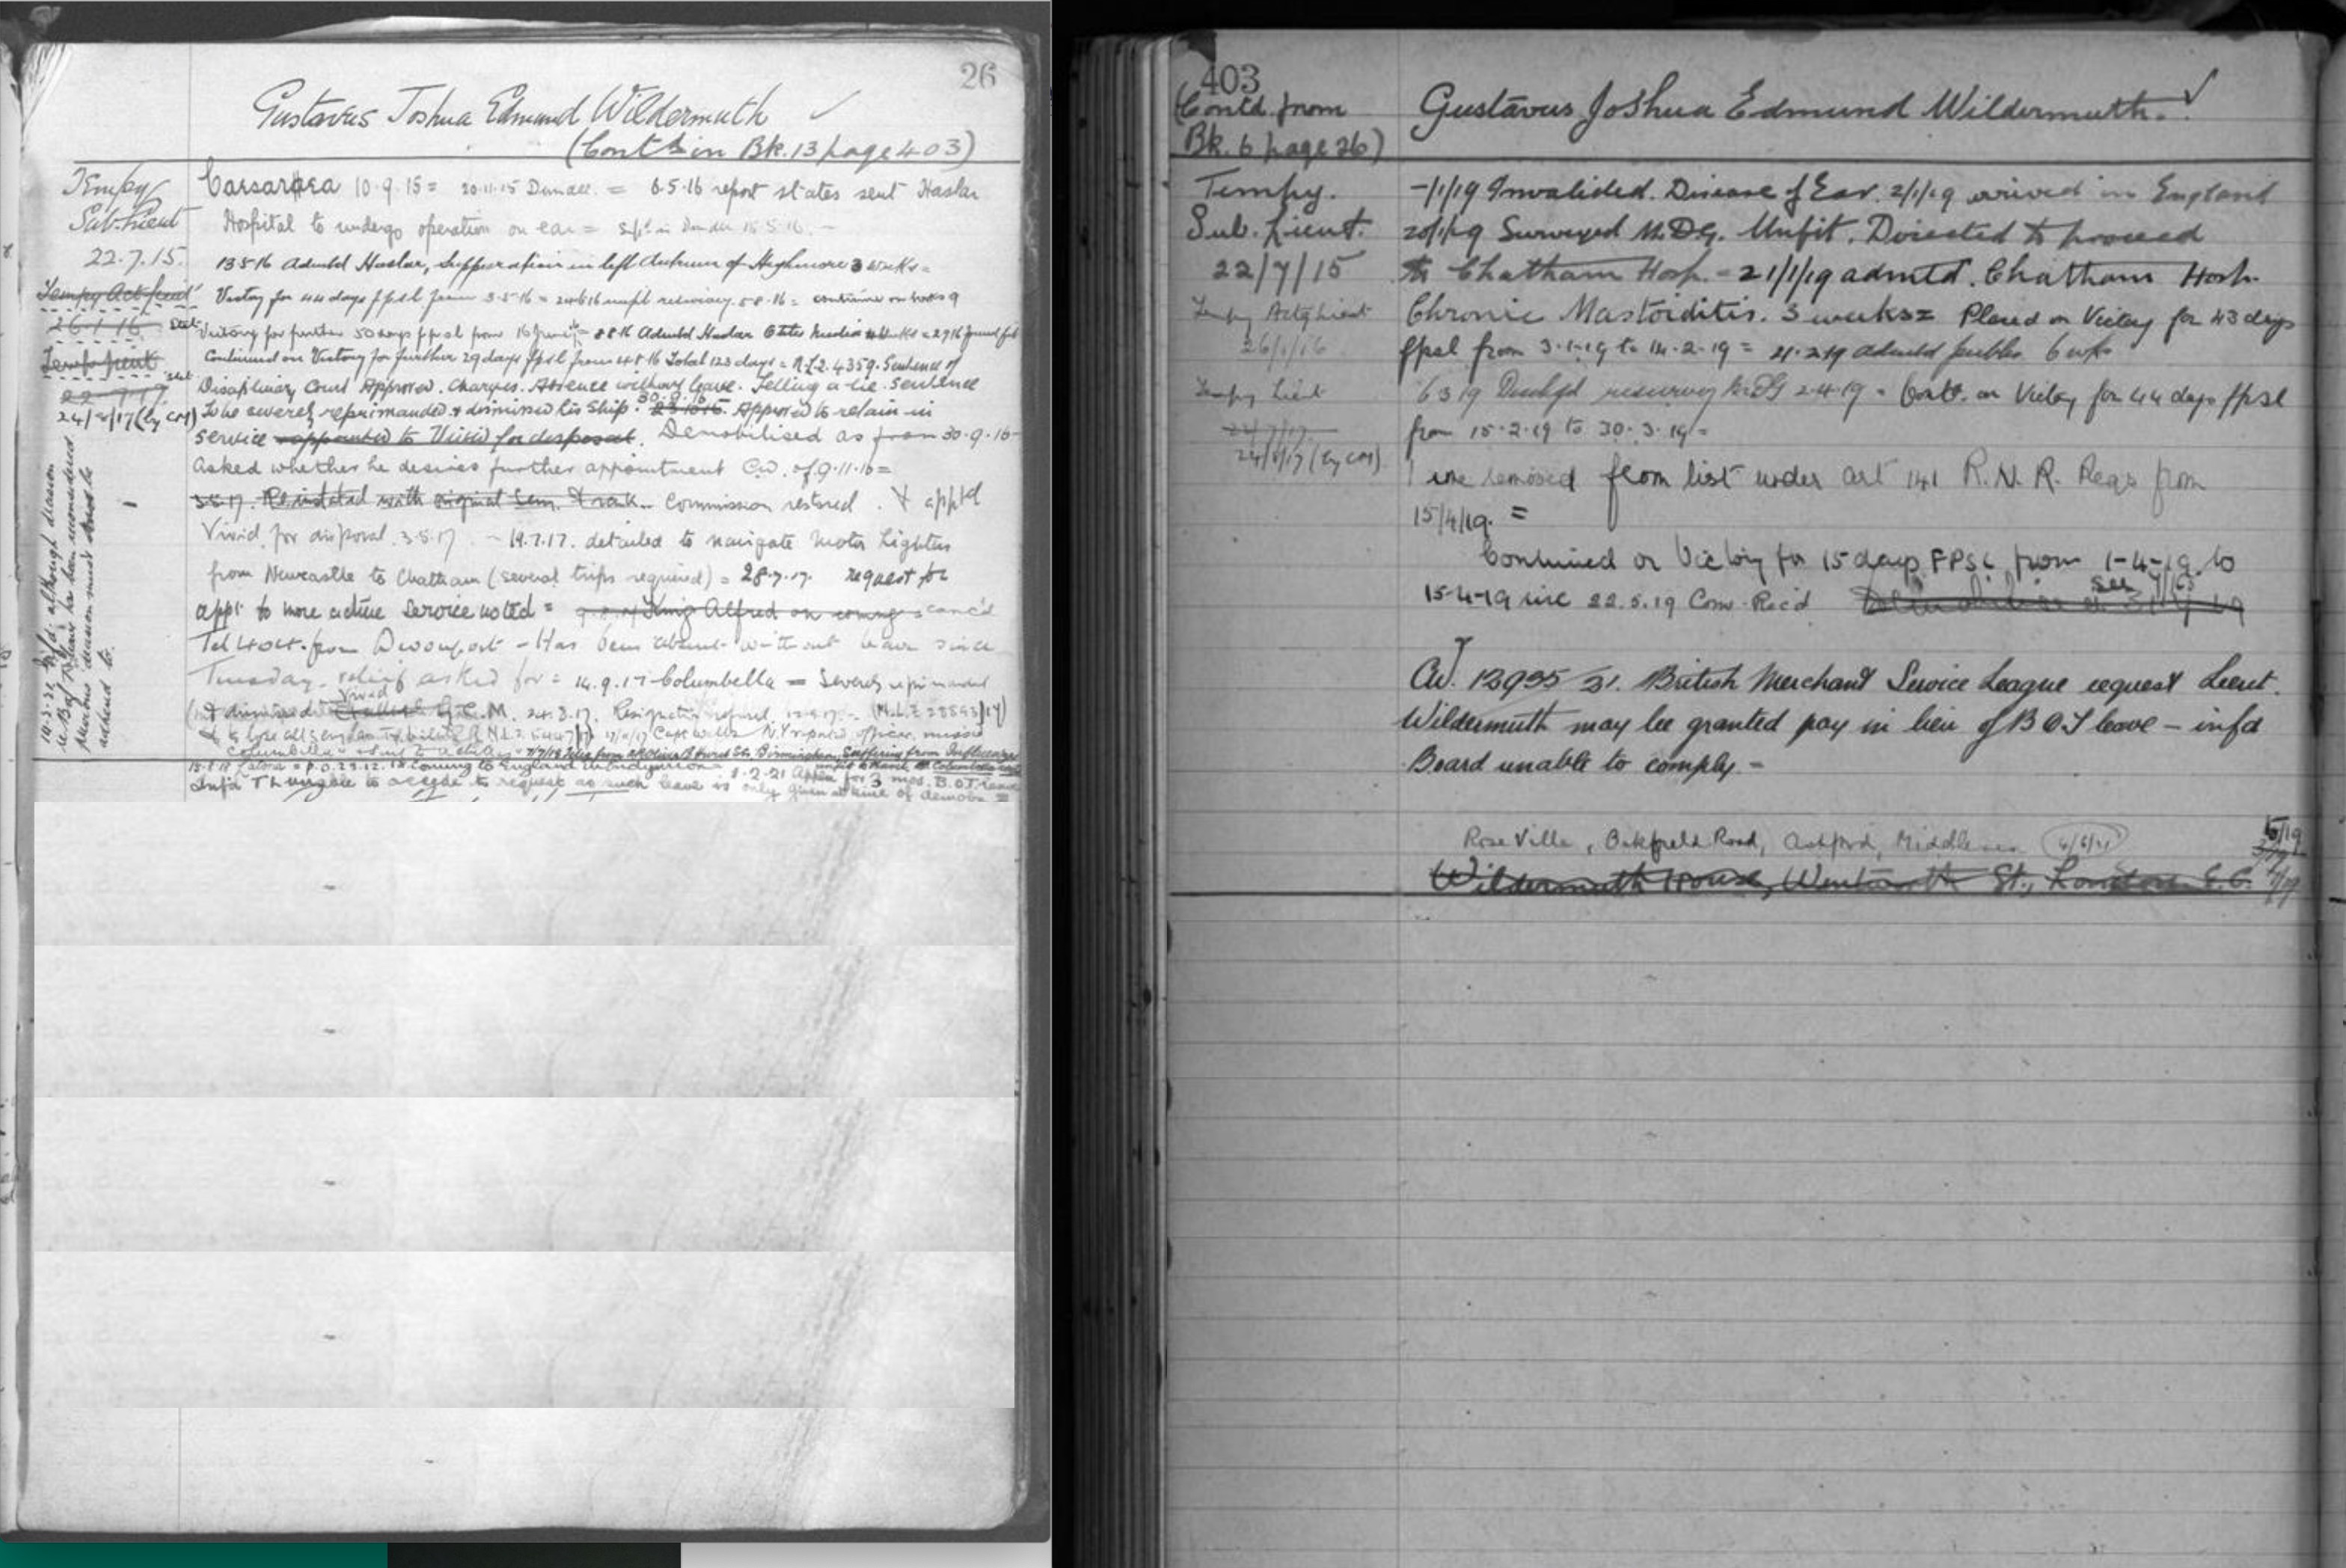 26
Gustavus Joshua Edmund Wildermuth
(Contd in Bk. 13 page 403)
Tempy
Sub Lieut
22.7.15.
Tempy Act Lieut
26.1.16
Temp Lieut
22.7.17
24/8/17 (by CM)
Caesarea 10.9.15 = 20.11.15 Dundee. = 6.5.16 report states sent Haslar
Hospital to undergo operation on ear = in Dundee 15.5.16. -
13.5.16 Admtd Haslar, Suppuration in left Antrum of Highmore 3 weeks =
Victory for 44 days fpsl from 3.5.16 = 24.6.16 unfit resurvey 5.8.16 = continue on books of
Victory for further 50 days fpsl from 16 June = 8.8.16 Admtd Haslar Otitis Media 4 weeks = 2.9.16 found fit
Continued on Victory for further 29 days fpsl from 4.8.16 Total 123 days = N.L.2. 4359. Sentence of
Disciplinary Court Approved. Charges. Absence without leave. Telling a lie. Sentence
to be severely reprimanded & dismissed his ship. 30.9.16 23.10.16. Approved to retain in
service appointed to Vivid for disposal. Demobilised as from 30.9.16 -
Asked whether he desires further appointment C.W. of 9.11.16 =
3.5.17. Reinstated with original Sen. & rank. Commission restored. & apptd
Vivid for disposal 3.5.17. - 19.7.17. detailed to navigate Motor Lighters
from Newcastle to Chatham (several trips required) = 28.7.17. request for
appt to more active service noted = King Alfred on coming = canc'd
Tel 404. from Devonport - Has been absent without leave since
Tuesday. relief asked for = 14.9.17 Columbella = Severely reprimanded
(& dismissed Vivid by C.M. 24.8.17. Resignation refused (N.L.2 28593/17)
& to lose all seny as Ty Sub Lt N.L.2. 17/11/17 Capt wills N.Y. reports officer missed
Columbella 7/7/18 Tele from Hurst St. Birmingham, Suffering from Influenza
P.O. 23.12.18 Coming to England 8.2.21 Appn for 3 mos. B.O.T. leave
Infd T.L. unable to accede to request as such leave is only given at time of demobn =
10.3.21 Infd. although decision
re B of T leave has been reconsidered
previous decision must be
adhered to.
403
(Contd. from
Bk. 6 page 26)
Gustavus Joshua Edmund Wildermuth.
Tempy.
Sub. Lieut.
22/7/15
Tempy Actg Lieut
26/1/16
Tempy Lieut
22/7/17
24/8/17 (by CM)
-/1/19 Invalided. Disease of Ear. 2/1/19 arrived in England
20/1/19 Surveyed M.D.G. Unfit. Directed to proceed
to Chatham Hosp. = 21/1/19 admtd. Chatham Hosp.
Chronic Mastoiditis. 3 weeks = Placed on Victory for 43 days
fpsl from 3.1.19 to 14.2.19 = 21.2.19 admtd 6 wks
6.3.19 Dischgd resurvey M.D.G 2.4.19 = Contd. on Victory for 44 days fpsl
from 15.2.19 to 30.3.19 =
removed from list under art 141 R.N.R. Regs from
15/4/19. =
Continued on Victory for 15 days FPSL from 1-4-19 to
15-4-19 inc 22.5.19 Com. Rec'd
CW. 12935/21. British Merchant Service League request Lieut.
Wildermuth may be granted pay in lieu of B O T leave - infd
Board unable to comply. -
Rose Ville, Oakfield Road, Ashford, Middlesex
Wildermuth House, Wentworth St., London E.C.